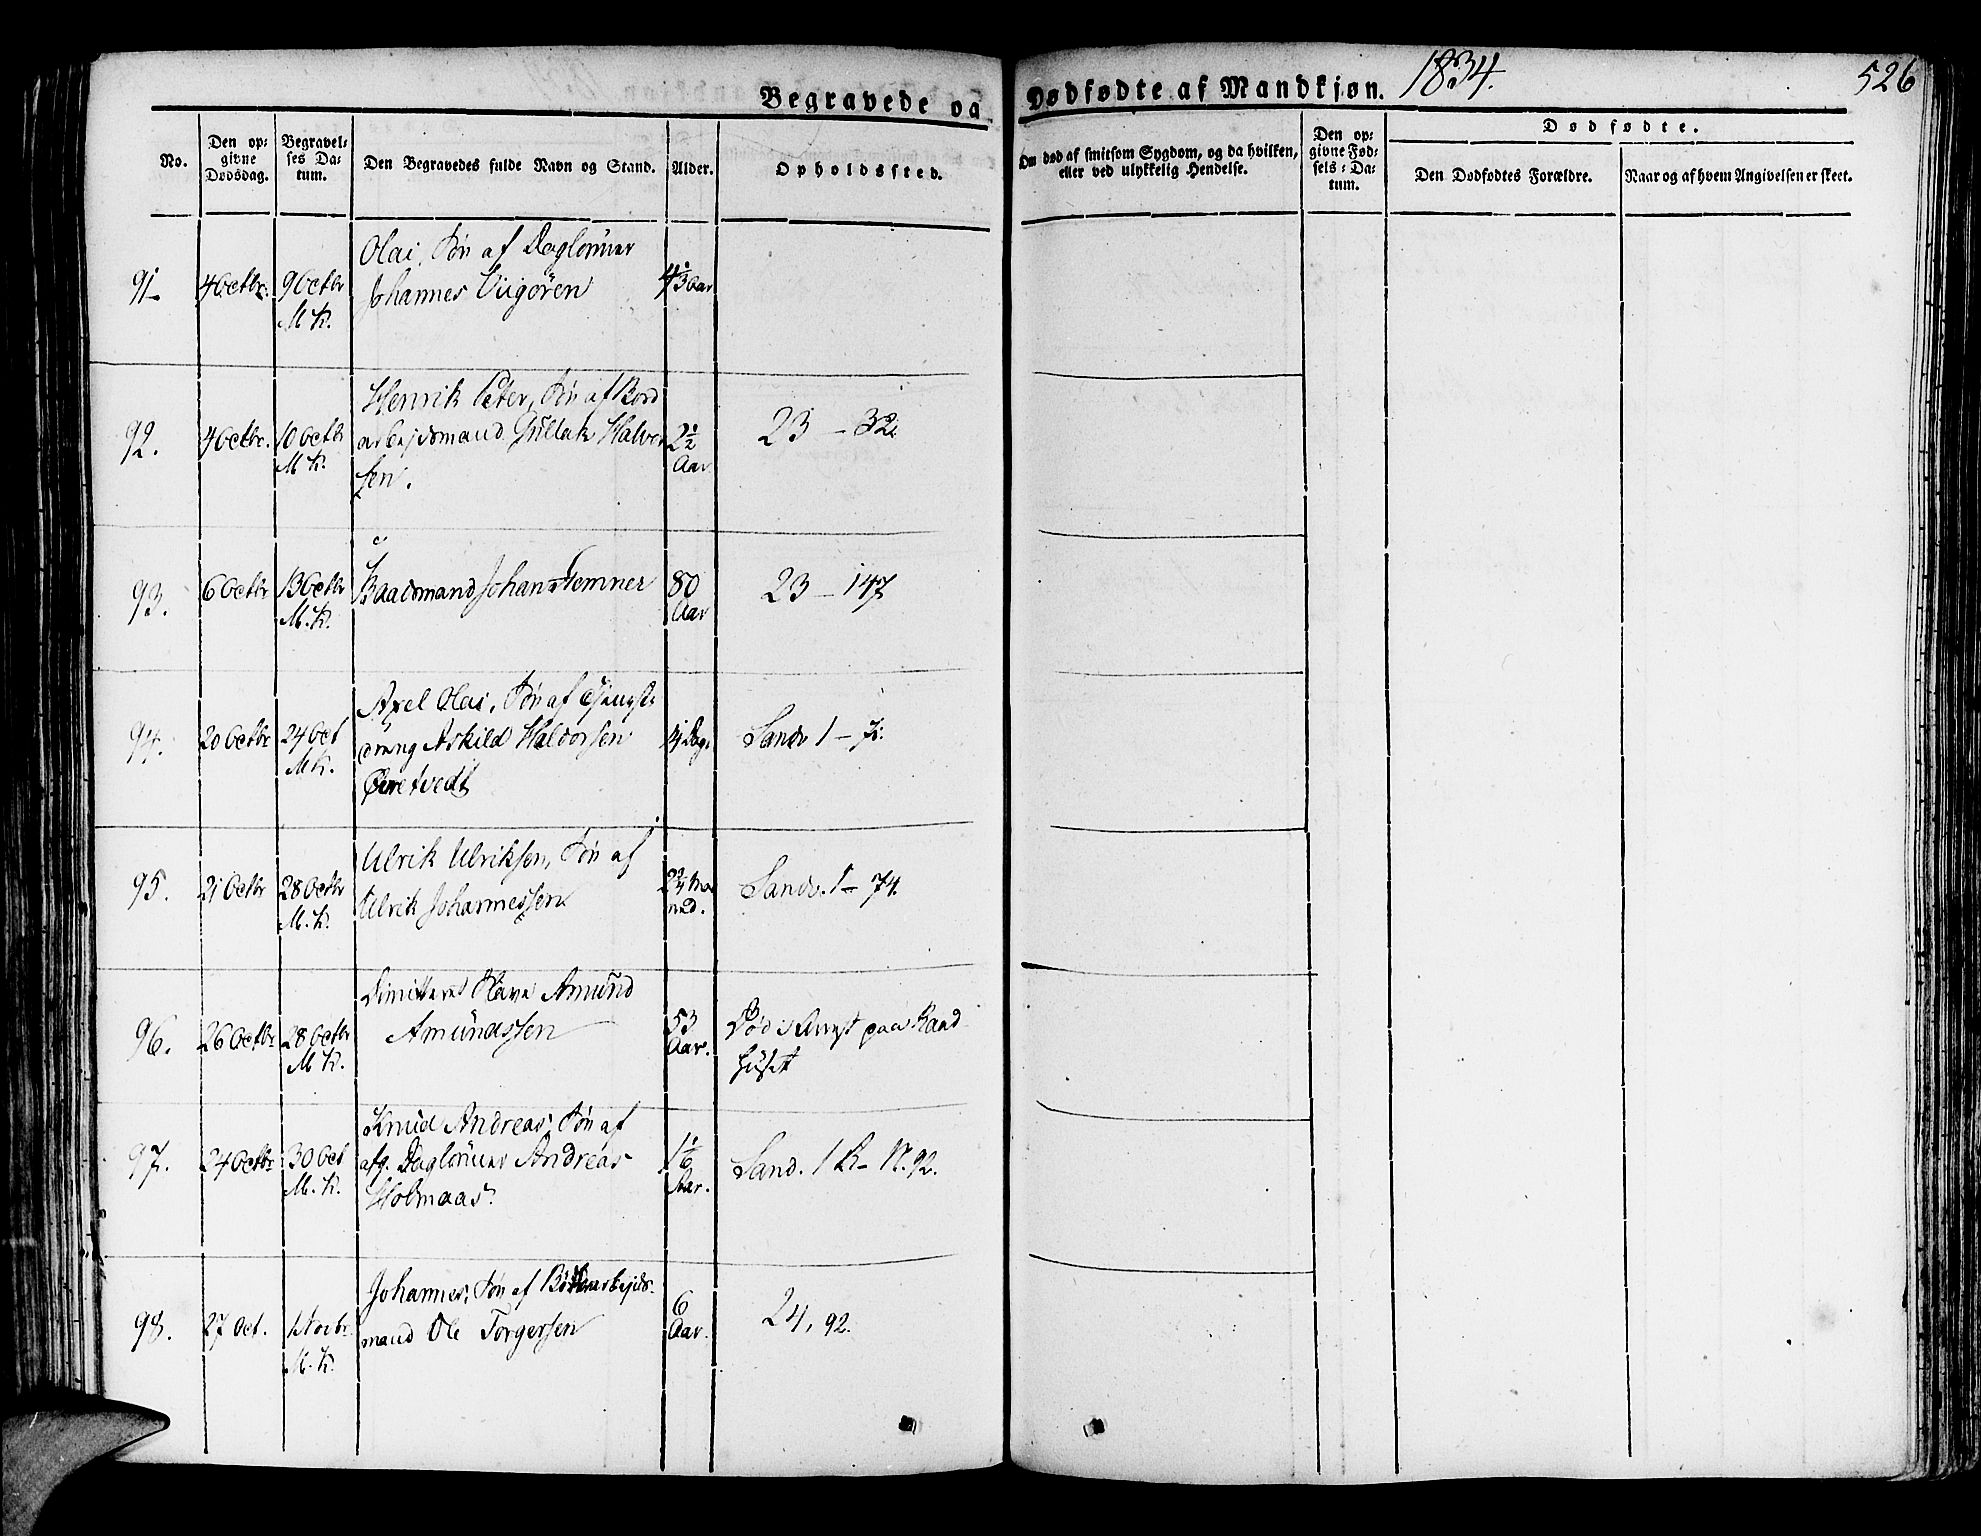 Begravede og Dødfødte af Mandkjøn. 1834. 526
No.
Den opgivne Dødsdag.
Begravelses Datum.
Den Begravedes fulde Navn og Stand.
Alder.
Opholdssted.
Om død af smitsom Sygdom, og da hvilken, eller ved ulykkelig Hendelse.
Den opgivne Fødsels-Datum.
Dødfødte.
Den Dødfødtes Forældre.
Naar og af hvem Angivelsen er skeet.
91. 4 Octbr. 9 Octbr M. K.
Olai, Søn af Dagleiner
Johannes Viigøren
4 1/3 Aar
92. 4 Octbr. 10 Octbr M. K.
Henrik Peter, Søn af Bord
arbejdsmand Gullak Halvor
sen.
2 1/2 Aar
23 – 32.
93. 6 Octbr 13 Octbr M. K.
Baadsmand Johan Stemner
80 Aar
23 – 147
94. 20 Octbr 24 Oct M. K.
Axel Olai, Søn af Tjeneste
dreng Askild Haldorsen
Øvretvedt
14 Dage
Sandv 1 – 7.
95. 21 Octbr 28 Octbr M. K.
Ulrik Ulriksen, Søn af
Ulrik Johannessen
2 3/4 Maaned.
Sandv. 1 – 74.
96. 26 Octbr 28 Octbr M. K.
Dimitteret Slave Amund
Amundssen
53 Aar.
Død i Arrest paa Raad
huset
97. 24 Octbr 30 Oct M. K.
Knud Andreas, Søn af
afg. Dagleiner Andreas
Holmaas.
1 1/6 Aar.
Sand. 1 R – N. 92.
98. 27 Oct. 1 Novbr. M. K.
Johannes, Søn af
mand Ole Torgersen
6 Aar.
24, 92.